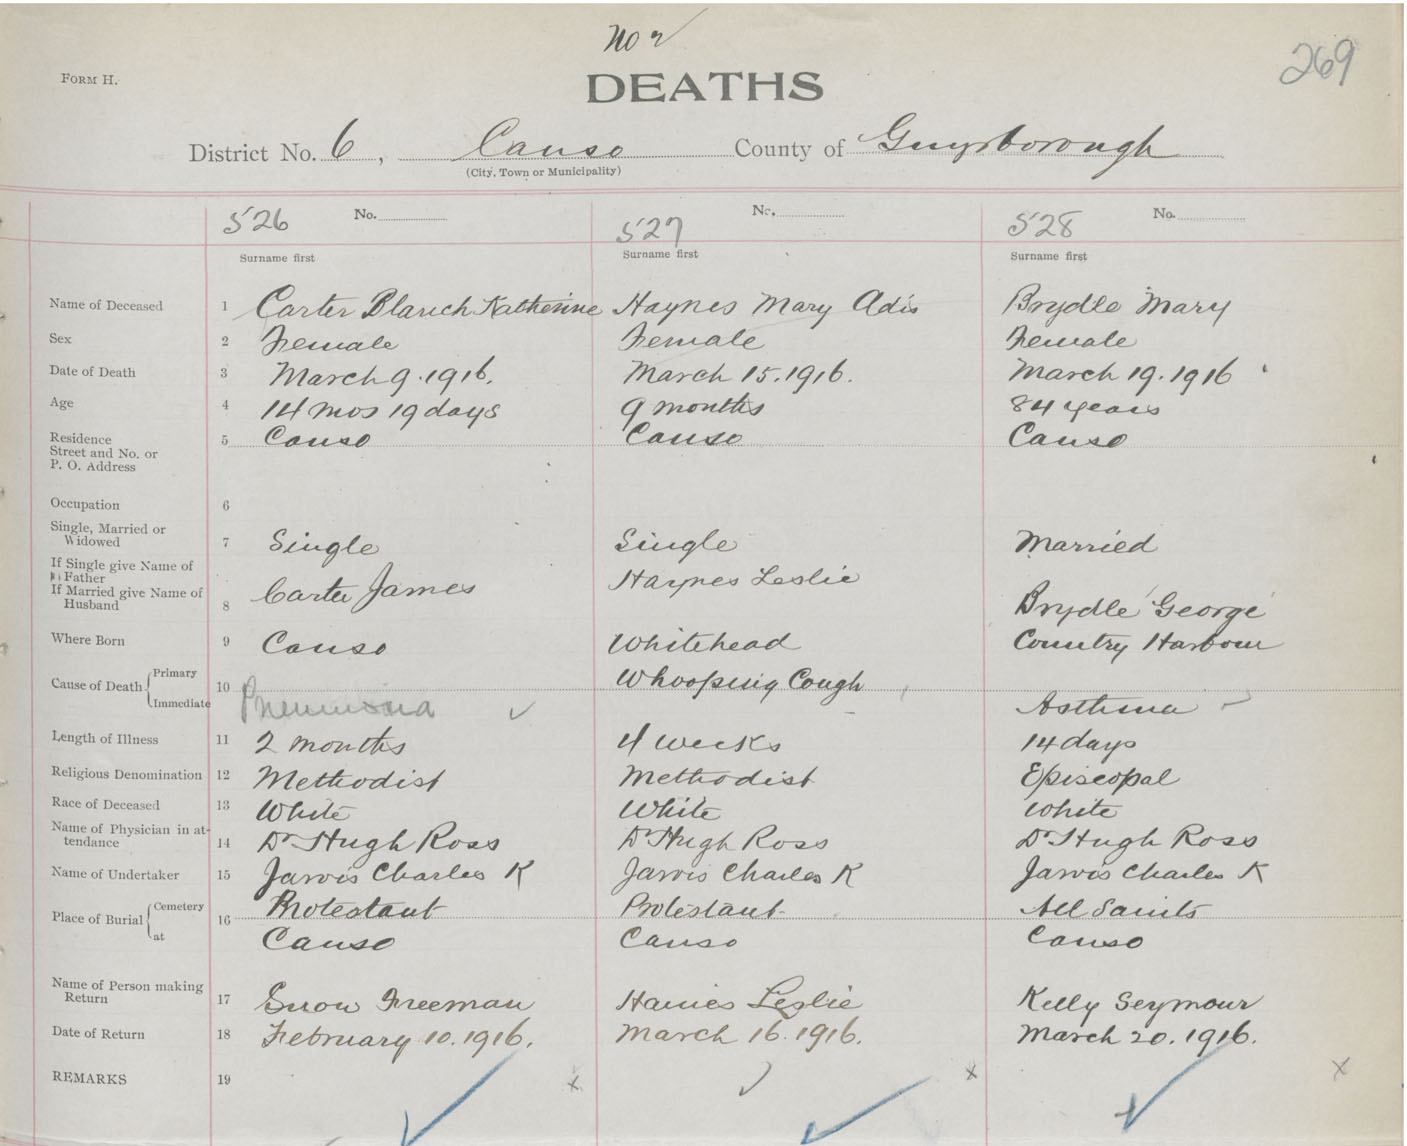 No 2
269
FORM H.
DEATHS
District No. 6, Canso County of Guysborough
(City, Town or Municipality)
526 No. 527 No. 528 No.
Surname first Surname first Surname first
Name of Deceased 1 Carter Blanch Katherine Haynes Mary Adis Brydle Mary
Sex 2 Female Female Female
Date of Death 3 March 9. 1916. March 15. 1916. March 19. 1916
Age 4 14 mos 19 days 9 months 84 years
Residence 5 Canso Canso Canso
Street and No. or
P. O. Address
Occupation 6
Single, Married or
Widowed 7 Single Single Married
If Single give Name of
Father Carter James Haynes Leslie
If Married give Name of
Husband 8 Brydle George
Where Born 9 Canso Whitehead Country Harbour
Cause of Death Primary 10 Whooping Cough
Immediate Pneumonia Asthma
Length of Illness 11 2 months 4 weeks 14 days
Religious Denomination 12 Methodist Methodist Episcopal
Race of Deceased 13 White White White
Name of Physician in at-
tendance 14 Dr Hugh Ross Dr Hugh Ross Dr Hugh Ross
Name of Undertaker 15 Jarvis Charles K Jarvis Charles K Jarvis Charles K
Place of Burial Cemetery 16 Protestant Protestant All Saints
at Canso Canso Canso
Name of Person making
Return 17 Snow Freeman Hanies Leslie Kelly Seymour
Date of Return 18 February 10. 1916. March 16. 1916. March 20. 1916.
REMARKS 19 x x x